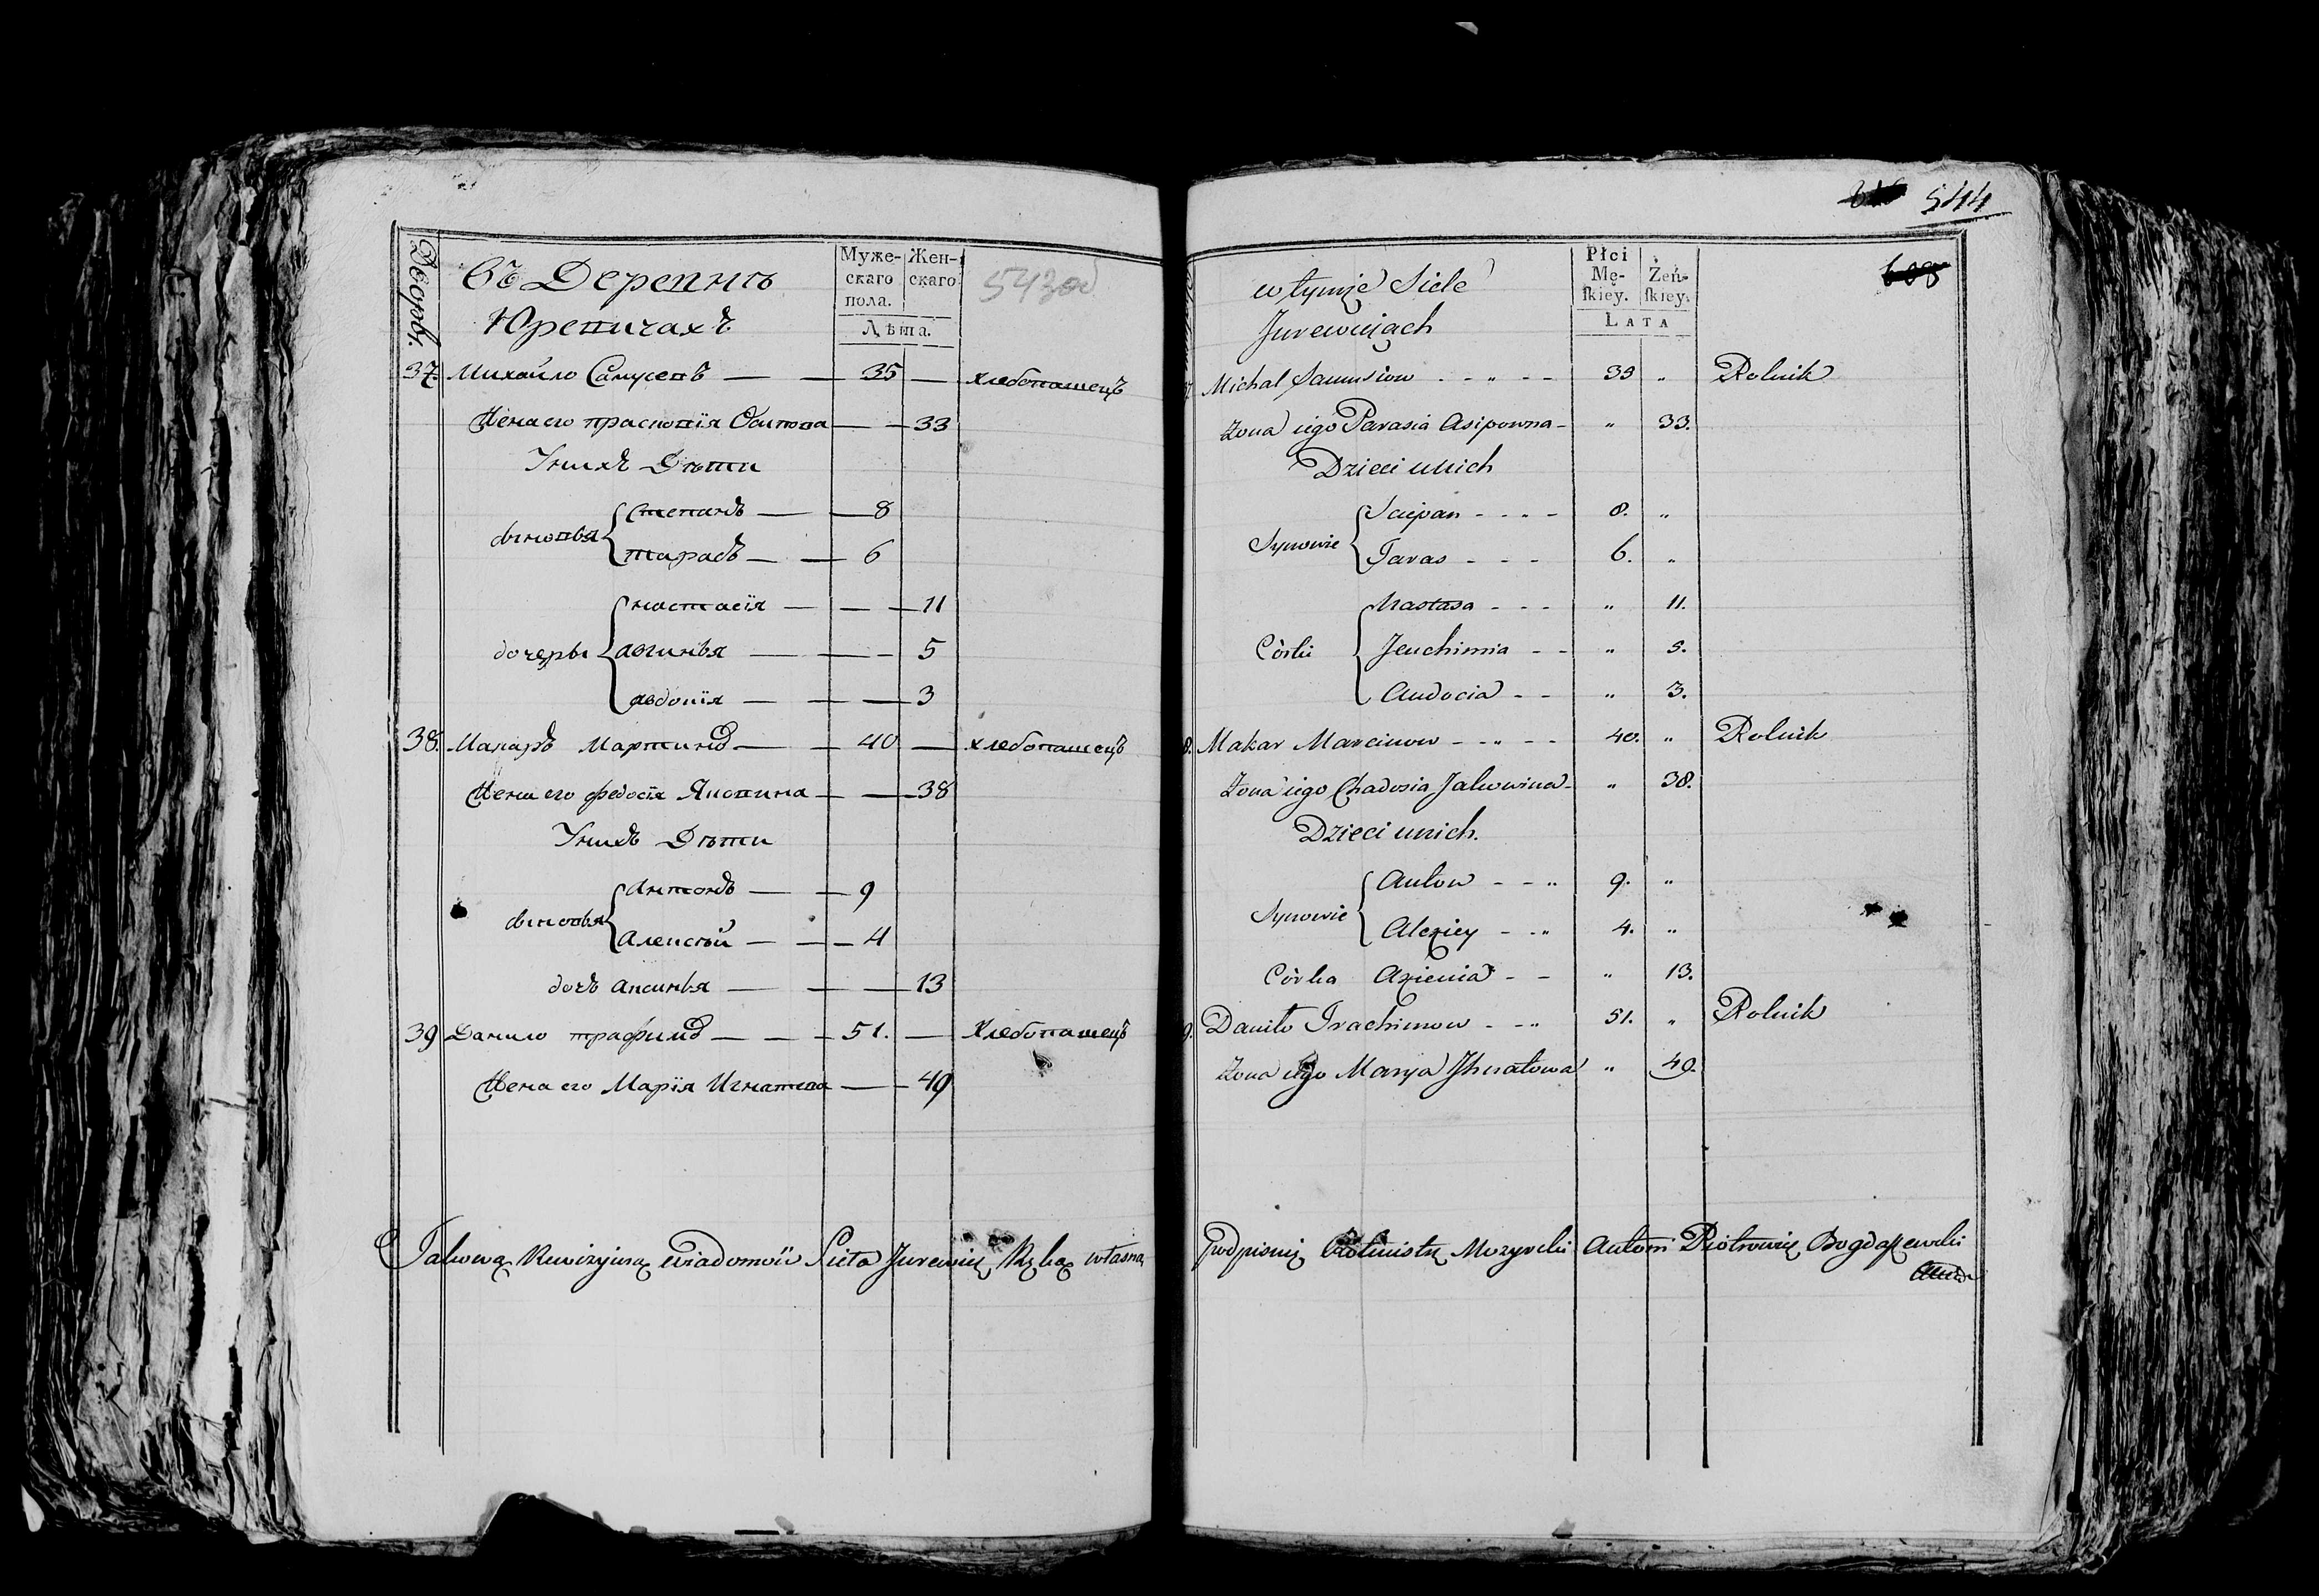 Дворовъ.
въ Деревнѣ
Юревичахъ
Муже-
скаго
пола.
Жен-
скаго
Лѣта.
543 об
37. Михайло Самусевъ — — 35 — хлебопашецъ
Жена его прасковія Осипова — — 33
У нихъ Дѣти
сыновья { степанъ — — 8
тарасъ — — 6
дочеры { настасія — — — 11
авгинья — — — 5
авдотія — — — 3
38. Макаръ Мартиновъ — — 40 — хлебопашецъ
Жена его федосія Яковлина — — 38
У нихъ Дѣти
сыновья { антонъ — — 9
Алексѣй — — 4
дочъ аксинья — — — 13
39 Данило трафимовъ — — 51. — Хлебопашецъ
Жена его Марія Игнатова — — 49
544
w tymże Siele
Jurewiczach
Płci
Mę-
skiey.
Żeń-
skiey.
LATA
Michał Samusiow - - „ - - 35 „ Rolnik
Zona iego Parasia Asipowna - „ 33.
Dzieci u nich
Synowie { Sciepan - - - - 8. „
Taras - - - 6. „
Córki { Nastasa - - - „ 11.
Jeuchimia - - „ 5.
Audocia - - „ 3.
8. Makar Marcinow - - „ - - 40. „ Rolnik
Zona iego Chadosia Jakowina - „ 38.
Dzieci u nich.
Synowie { Anton - - „ 9. „
Alexiey - - „ 4. „
Córka Axienia - - „ 13.
9. Daniło Trachimow - - „ 51. „ Rolnik
Zona iego Marya Jhnatowa „ 49.
Takową Rewizyiną Wiadomość Sieła Jurewicz Ręką własną
podpisuię Rotmistrz Mozyrski Antoni Piotrowicz Bogdaszewski